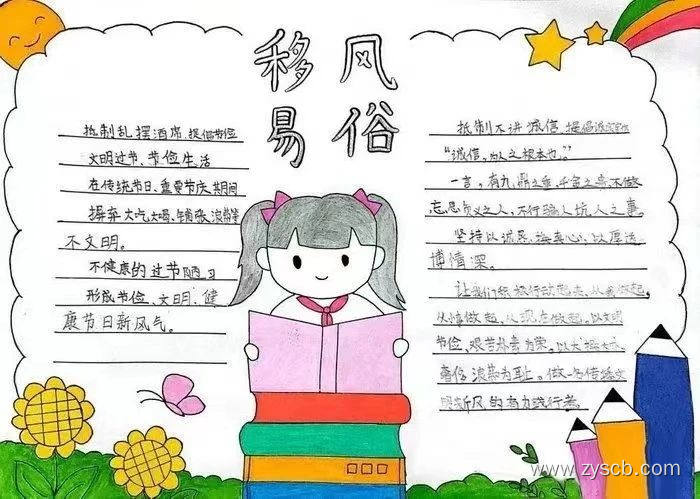 移风
易俗
抵制乱摆酒席、提倡节俭
文明过节、节俭生活
在传统节日、重要节庆期间
摒弃大吃大喝、铺张浪费等
不文明。
不健康的过节陋习
形成节俭、文明、健
康节日新风气。
抵制不讲诚信、提倡诚实
"诚信,为人之根本也。"
一言,有九鼎之重,千金之
忘恩负义之人,不行骗人坑人之事。
坚持以诚 ,换真心,以厚德
博情深。
让我们积极行动起来,从我做起,
从 做起,从现在做起。以文明
节俭、艰苦 为荣。以大
奢侈浪费为耻。做一名传
新风的有力践行者
www.zyscb.com